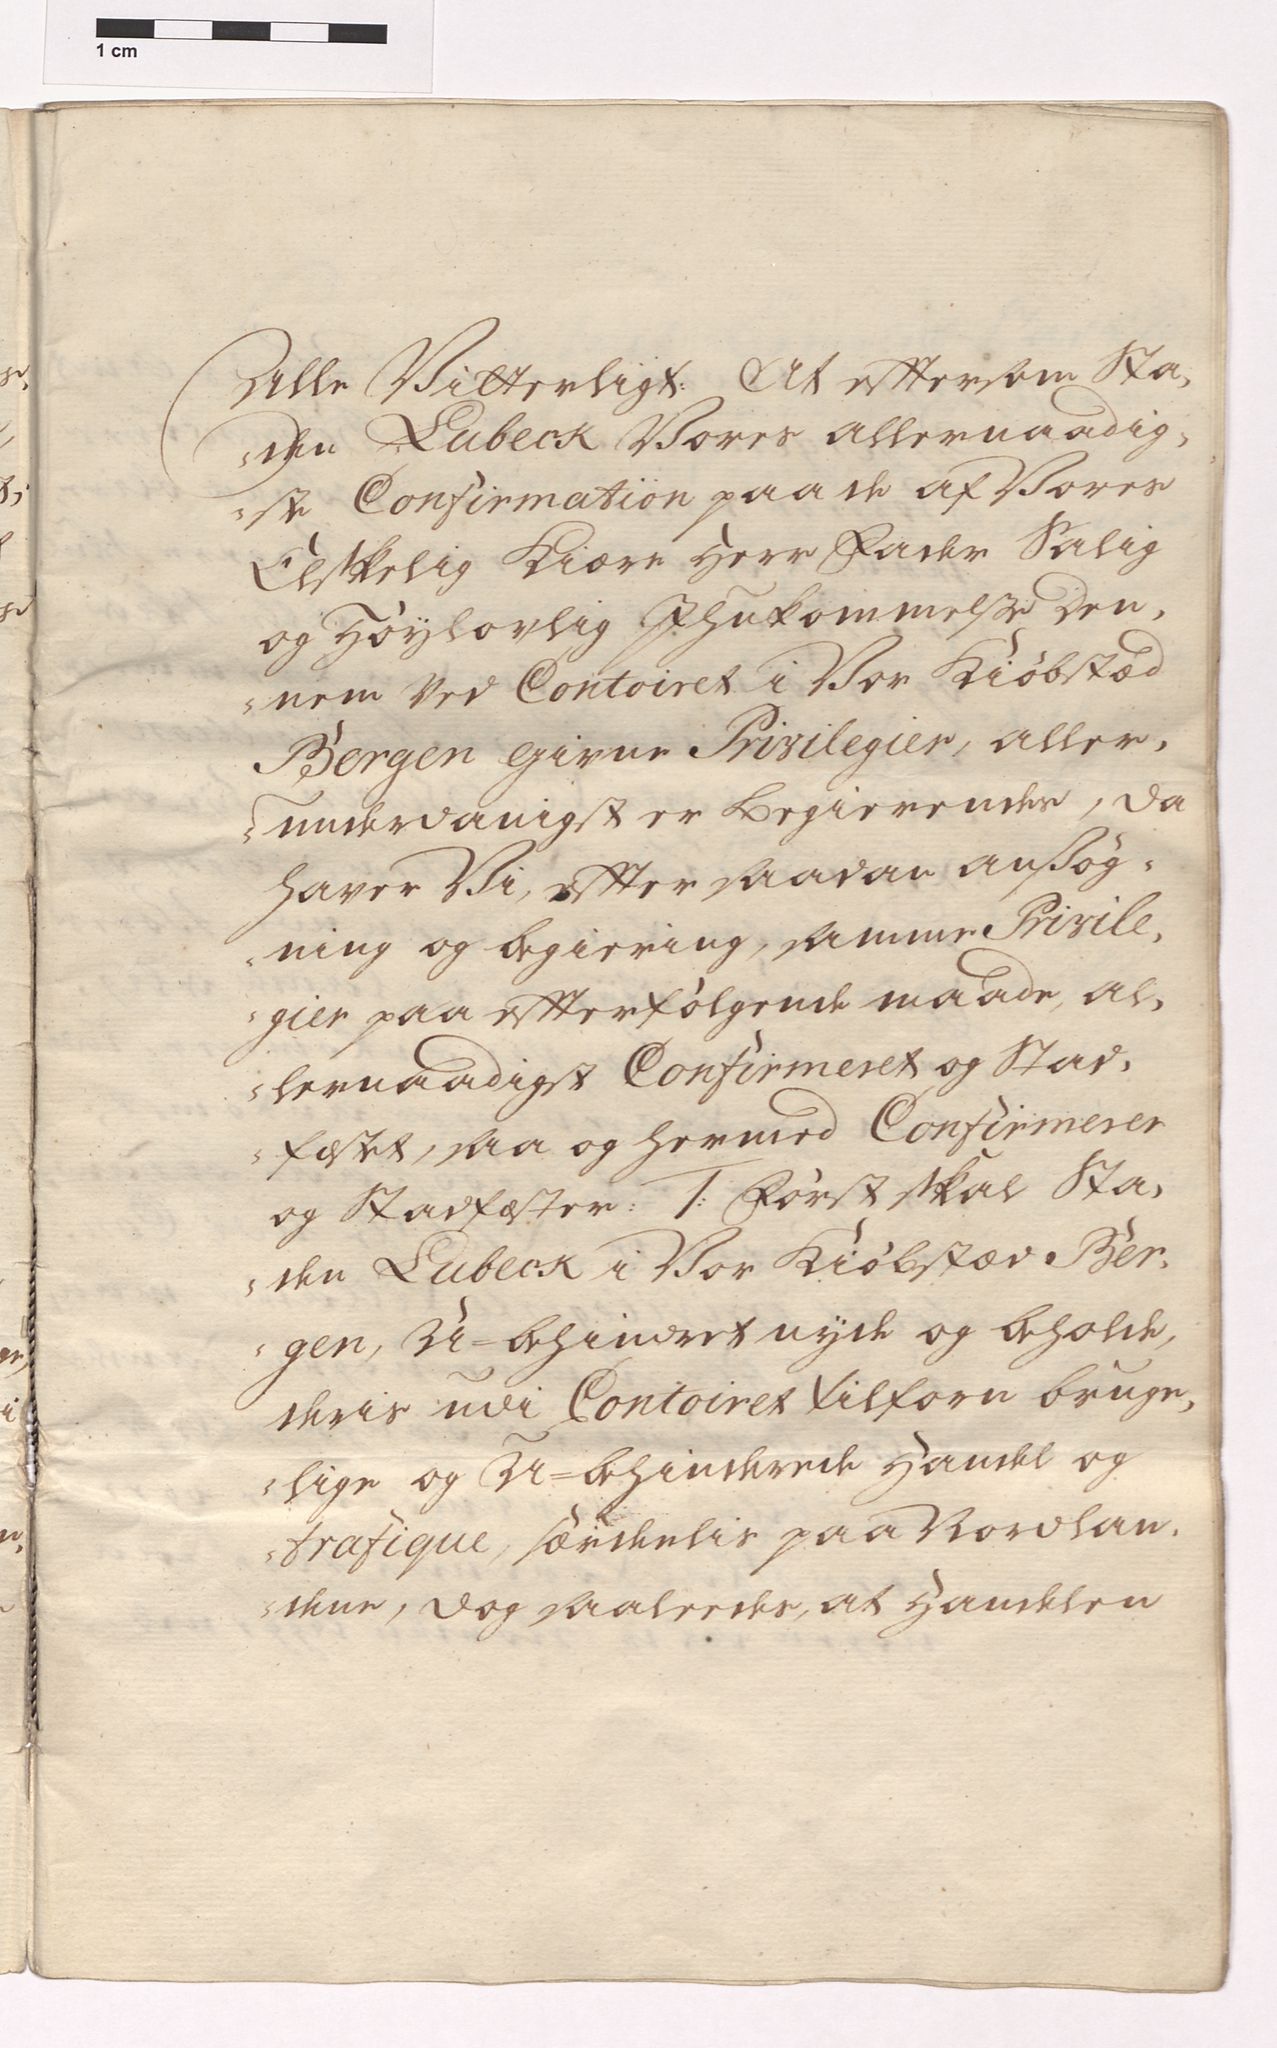 1 cm
Alle Vitterligt: At eftersom Sta,
„den Lubeck Vores allernaadig,
„ste Confirmation paa de af Vores
Elskelig Kiære Herr Fader Salig
og Höylovlig Ihukommelse Den,
„nem ved Contoiret i Vor Kiöbstæd
Bergen givne Privilegier, aller,
„underdanigst er begierendes, da
haver Vi, efter saadan ansög,
„ning og begiering, samme Privile,
„gier paa efterfölgende maade, al,
„lernaadigst Confirmeret og Stad,
„fæstet, saa og hermed Confirmerer
og Stadfæster: 1: Först skal Sta,
„den Lubeck i Vor Kiöbstæd Ber,
„gen, U=behindret nyde og beholde,
deris udi Contoiret tilforn bruge,
„lige og U=behinderede Handel og
„trafique, særdelis paa Nordlan,
„dene, dog saaledes, at Handelen